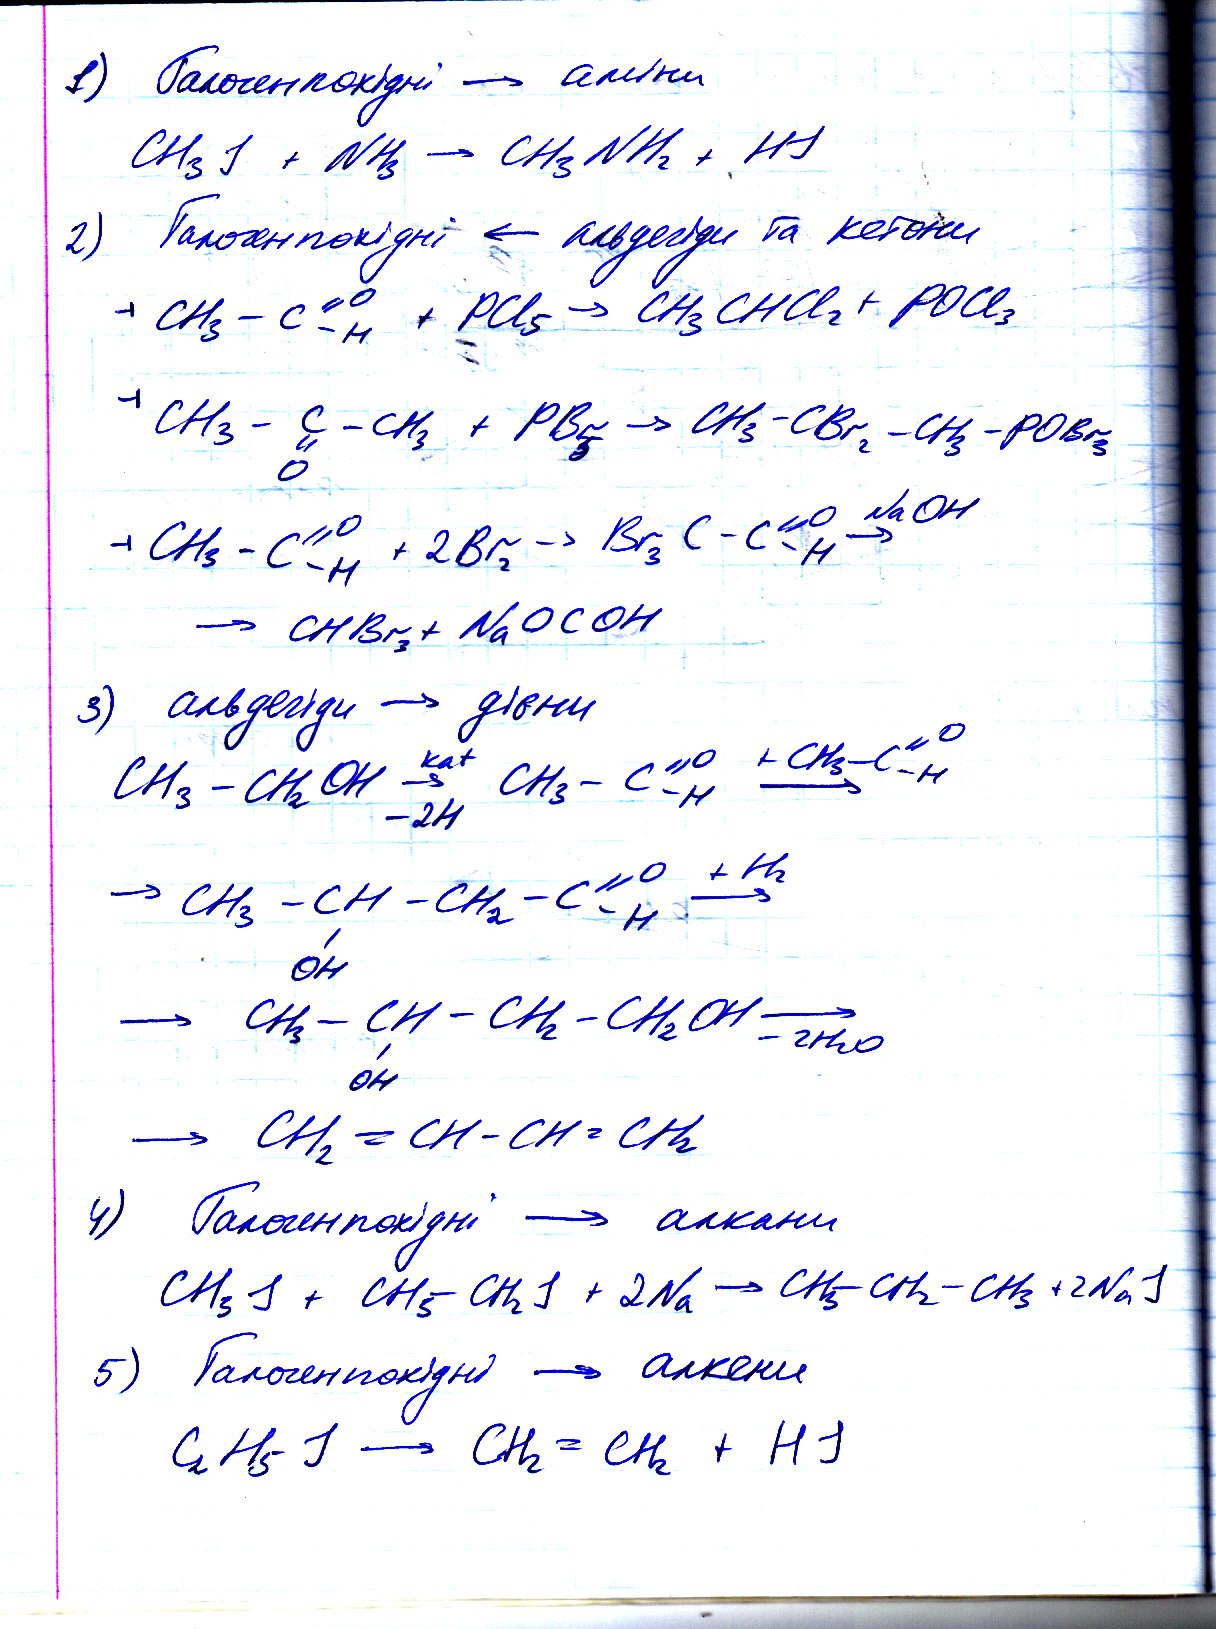 1) Галогенпохідні → аміни
CH₃J + NH₃ → CH₃NH₂ + HJ
2) Галогенпохідні ← альдегіди та кетони
→ CH₃ – C =O –H + PCl₅ → CH₃CHCl₂ + POCl₃
→ CH₃ – C – CH₃ + PBr₅ → CH₃ – CBr₂ – CH₃ – POBr₃
O
→ CH₃ – C =O –H + 2Br₂ → Br₃C – C =O –H NaOH →
→ CHBr₃ + NaOCOH
3) альдегіди → дієни
CH₃ – CH₂OH kat → –2H CH₃ – C =O –H + CH₃ – C =O –H →
→ CH₃ – CH – CH₂ – C =O –H + H₂ →
OH
→ CH₃ – CH – CH₂ – CH₂OH → –2H₂O
OH
→ CH₂ = CH – CH = CH₂
4) Галогенпохідні → алкани
CH₃J + CH₃ – CH₂J + 2Na → CH₃ – CH₂ – CH₃ + 2NaJ
5) Галогенпохідні → алкени
C₂H₅J → CH₂ = CH₂ + HJ